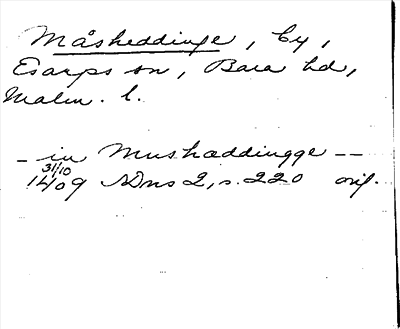 Måsheddinge, by,
Esarps sn, Bara hd,
Malm. l.
- in Mushæddingge --
31/10
1409 NDns 2, s. 220 orig.